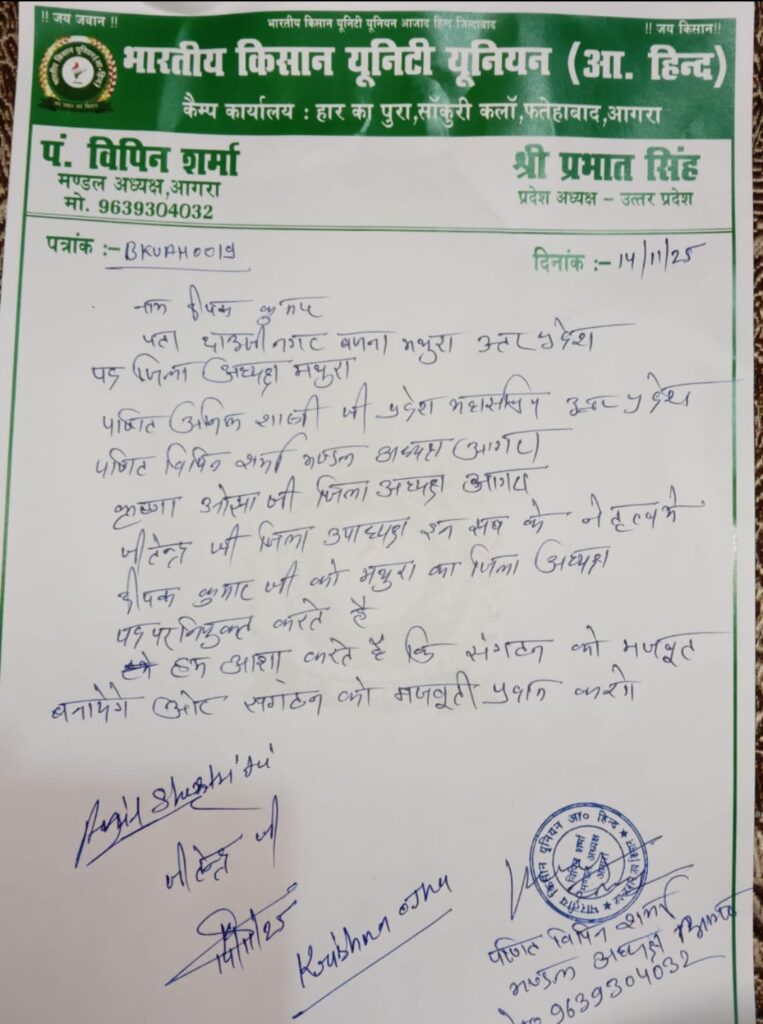 !! जय जवान !!
भारतीय किसान यूनिटी यूनियन आजाद हिन्द जिन्दाबाद
!! जय किसान!!
भारतीय किसान यूनिटी यूनियन (आ. हिन्द)
कैम्प कार्यालय : हार का पुरा,सॉकुरी कलॉ,फतेहाबाद,आगरा
पं. विपिन शर्मा
मण्डल अध्यक्ष,आगरा
मो. 9639304032
श्री प्रभात सिंह
प्रदेश अध्यक्ष – उत्तर प्रदेश
पत्रांक :- BKUAH0019
दिनांक :- 14/11/25
नाम दीपक कुमार
पता दाऊजी नगर बजना मथुरा उत्तर प्रदेश
पद जिला अध्यक्ष मथुरा
पण्डित अनिल शास्त्री जी प्रदेश महासचिव उत्तर प्रदेश
पण्डित विपिन शर्मा मण्डल अध्यक्ष (आगरा)
कृष्णा ओझा जी जिला अध्यक्ष आगरा
जीतेन्द्र जी जिला उपाध्यक्ष इन सब के नेतृत्व मे
दीपक कुमार जी को मथुरा का जिला अध्यक्ष
पद पर नियुक्त करते है
हम आशा करते है कि संगठन को मजबूत
बनायेगे ओर संगठन को मजबूती प्रदान करेगे
जीतेन्द्र जी
Krishna ojha
भारतीय किसान यूनियन आ० हिन्द
विपिन शर्मा
मण्डल अध्यक्ष
आगरा
पण्डित विपिन शर्मा
मण्डल अध्यक्ष
9639304032